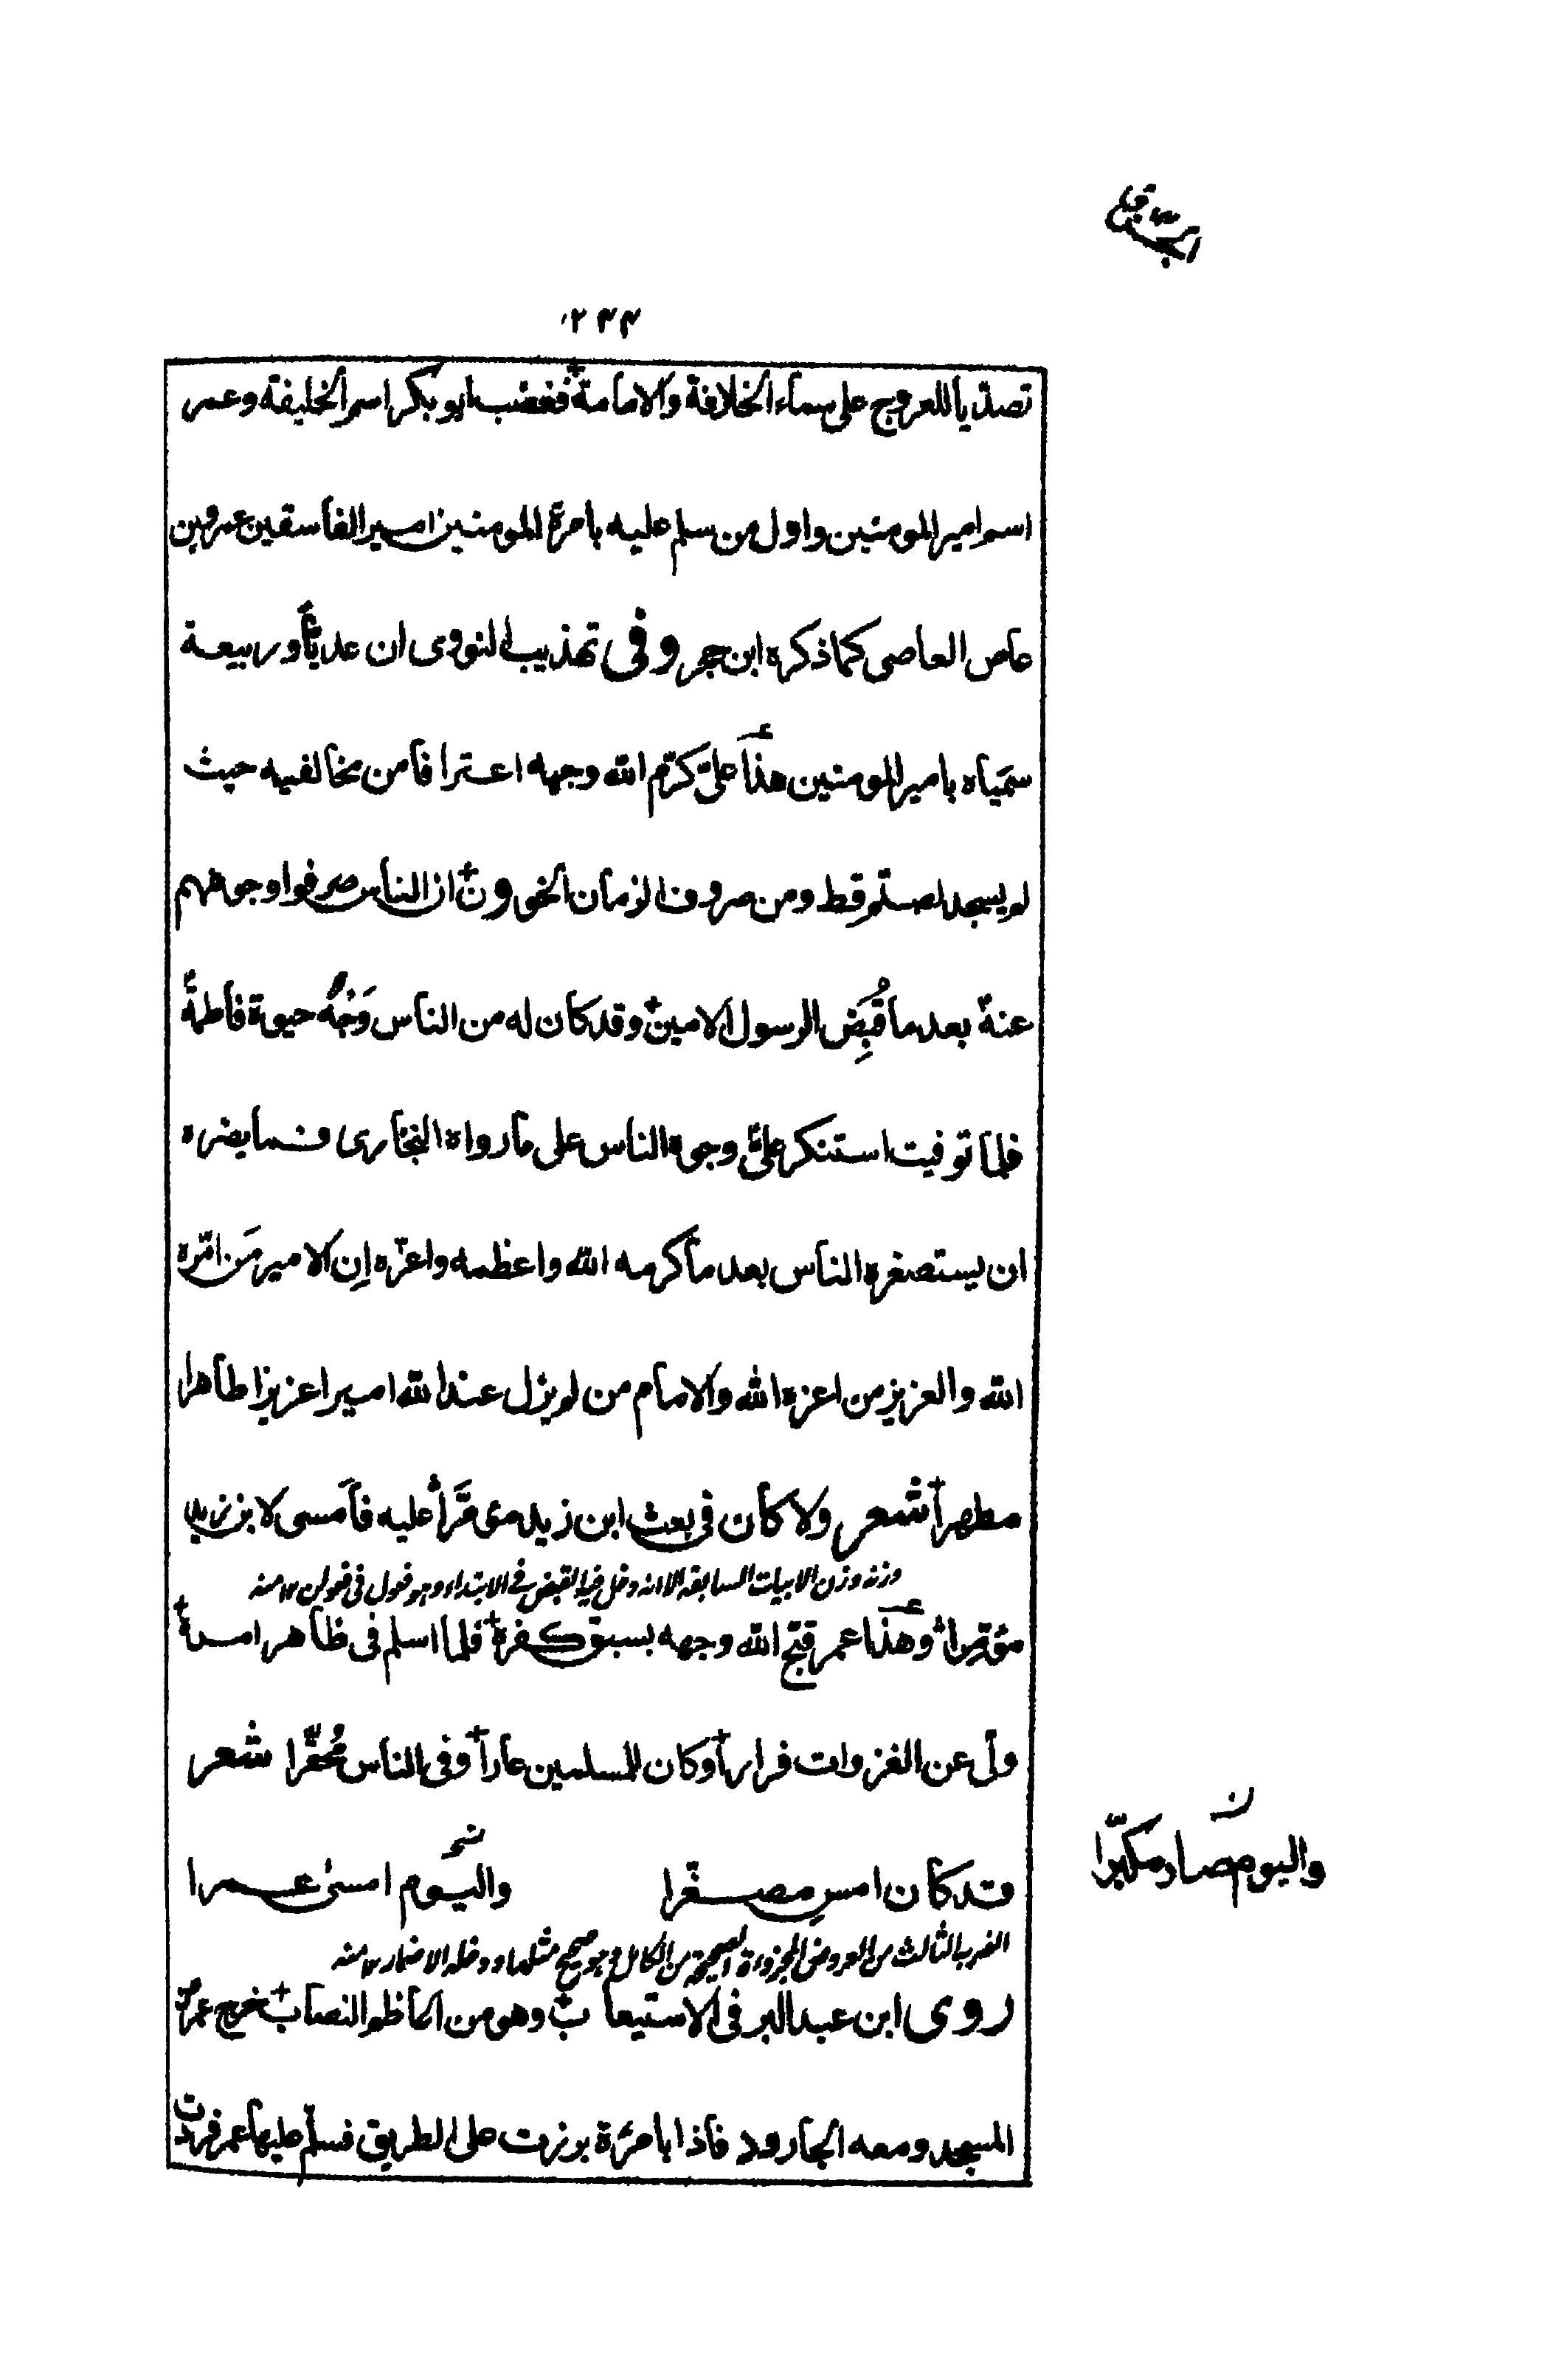 ۲۴۴
تصدّيا للعروج على سماء الخلافة والامامة فغضب ابو بكر اسم الخليفة وعمر
اسم امير المومنين واول من سلم عليه بامرة المومنين امير الفاسقين عمرو بن
عاص العاصى كما ذكره ابن حجر وفى تهذيب النووى ان عديّاً وربيعة
سمّياه بامير المومنين هذا علىّ كرّم الله وجهه اعترافا من مخالفيه حيث
لم يسجد لصنم قط ومن صروف الزمان الخوون ان الناس صرفوا وجوههم
عنه بعد ما قُبِض الرسول الامين وقد كان له من الناس وَجْهٌ حيوة فاطمة
فلما توفيت استنكر علىّ وجوه الناس على ما رواه البخارى فما يضره
ان يستصغره الناس بعد ما كرمه الله واعظمه واعزّه إن الامير مَن امّره
الله والعزيز من اعزه الله والامام من لم يزل عند الله اميرا عزيزا طاهرا
مطهرا شعر ولا كان فى بعث ابن زيد مؤمَّراً عليه فامسى لابن زيد
وزنه وزن الابيات السابقه الا انه دخل فيه القبض فى الابتداء وهو فعول فى فعولن ۱۲ منه
مؤمّرا وهذا عمر قبّح الله وجهه بسبق كفره فلما اسلم فى ظاهر امره
ولّى عن الغزوات فرارا وكان للمسلمين عارا وفى الناس مُحقّرا شعر
قد كان امس مصغّرا واليوم امسى عمرا
واليوم صار مكبّرا
الضرب الثالث من العروض المجزوءة الصحيحة من الكامل وهو صحيح مثلها ودخله الاضمار ۱۲ منه
روى ابن عبد البر فى الاستيعاب وهو من اكاظم النصاب خرج عمر من
المسجد ومعه الجارود فاذا بامرءة برزت على الطريق فسلّم عليها عمر فردت